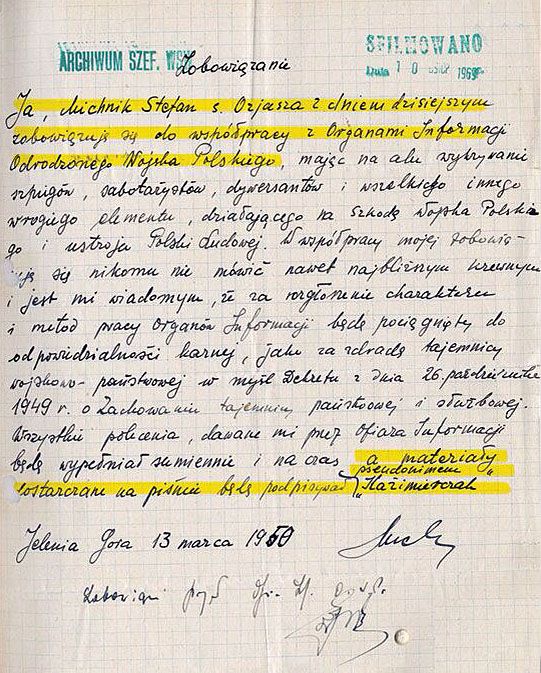 ARCHIWUM SZEF. WSW
SFILMOWANO
1969
Zobowiązanie
Ja, Michnik Stefan s. Ozjasza z dniem dzisiejszym
zobowiązuję się do współpracy z Organami Informacji
Odrodzonego Wojska Polskiego, mając na celu wykrywanie
szpiegów, sabotażystów, dywersantów i wszelkiego innego
wrogiego elementu, działającego na szkodę Wojska Polskie
go i ustroju Polski Ludowej. W współpracy mojej zobowią-
zuję się nikomu nie mówić nawet najbliższym krewnym
i jest mi wiadomym, że za rozgłoszenie charakteru
i metod pracy Organów Informacji będę pociągnięty do
odpowiedzialności karnej, jako za zdradę tajemnicy
wojskowo-państwowej w myśl Dekretu z dnia 26. października
1949 r. o Zachowaniu tajemnicy państwowej i służbowej.
Wszystkie polecenia, dawane mi przez Oficera Informacji
będę wypełniał sumiennie i na czas, a materiały
dostarczane na piśmie będę podpisywał pseudonimem
"Kaźmierczak"
Jelenia Góra 13 marca 1950